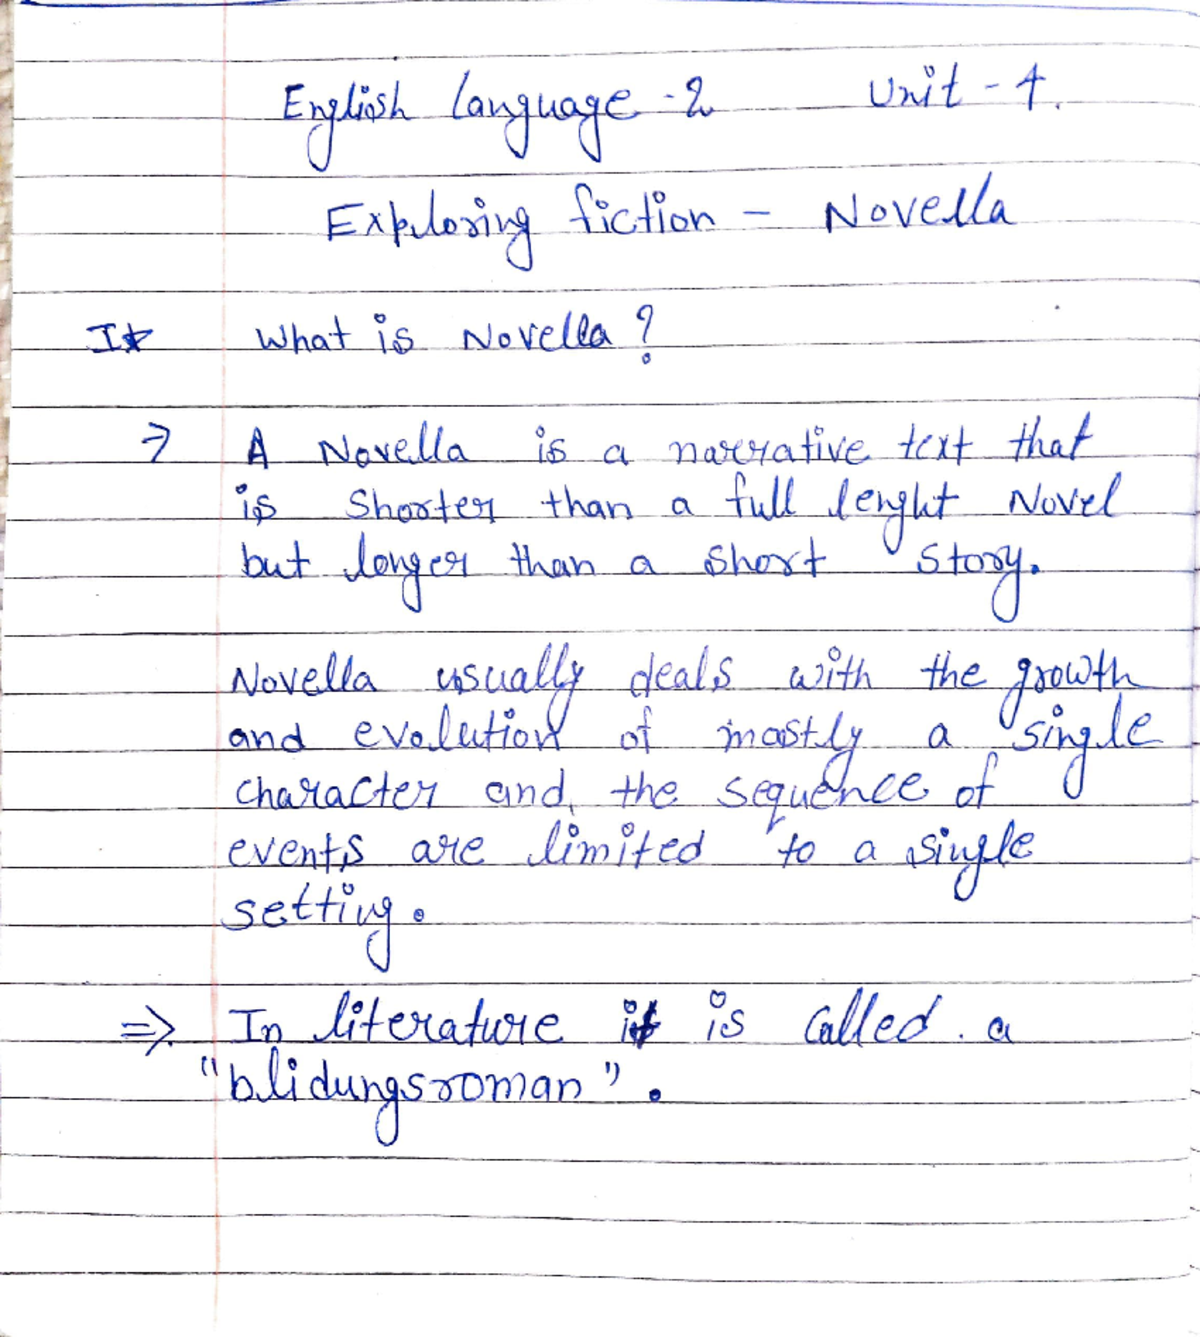 English language -2 Unit - 1.
Exploring fiction - Novella
I★ What is Novella ?
⇒ A Novella is a narrative text that
is Shorter than a full lenght Novel
but longer than a short story.
Novella usually deals with the growth
and evolution of mostly a single
character and the sequence of
events are limited to a single
setting.
⇒ In literature it is Called a
"blidungsroman".